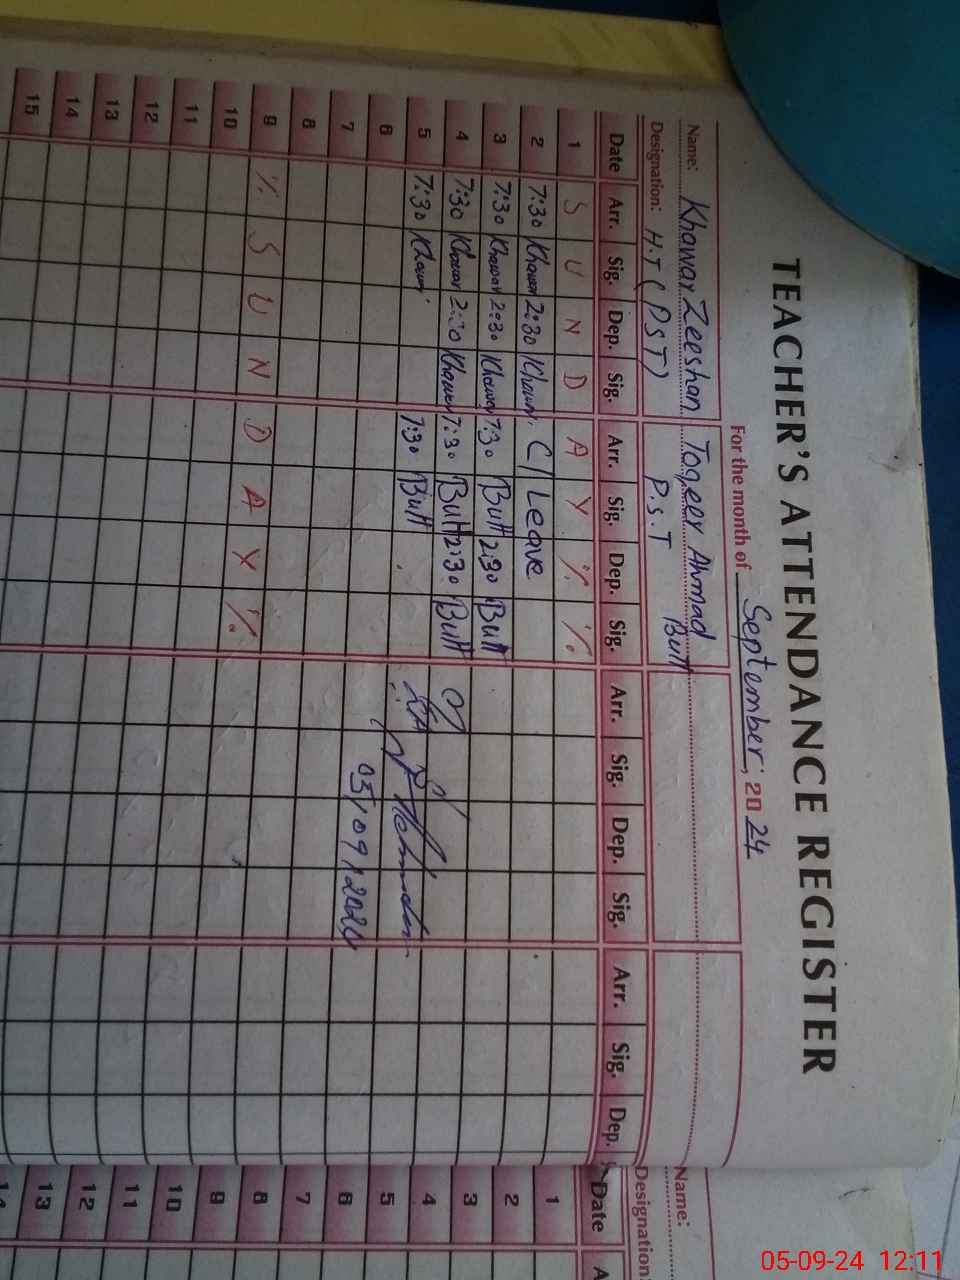 TEACHER'S ATTENDANCE REGISTER
For the month of September, 2024
Name: Khawar Zeeshan Toqeer Ahmad Butt
Designation: H.T (PST) P.S.T
Date Arr. Sig. Dep. Sig. Arr. Sig. Dep. Sig. Arr. Sig. Dep. Sig. Arr. Sig. Dep.
1 S U N D A Y % %
2 7:30 Khawar 2:30 Khawar C/Leave
3 7:30 Khawar 2:30 Khawar 7:30 Butt 2:30 Butt
4 7:30 Khawar 2:30 Khawar 7:30 Butt 2:30 Butt
5 7:30 Khawar 7:30 Butt
6 05/09/2024
7
8
9 % S U N D A Y %
10
11
12
13
14
15
Name:
Designation:
Date A
1
2
3
4
5
6
7
8
9
10
11
12
13
14
05-09-24 12:11